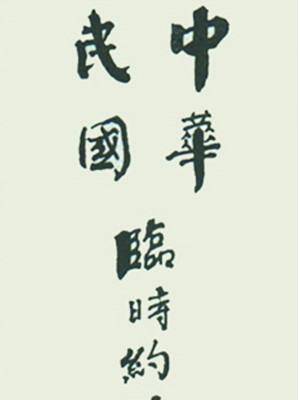 中華
民國
臨時約